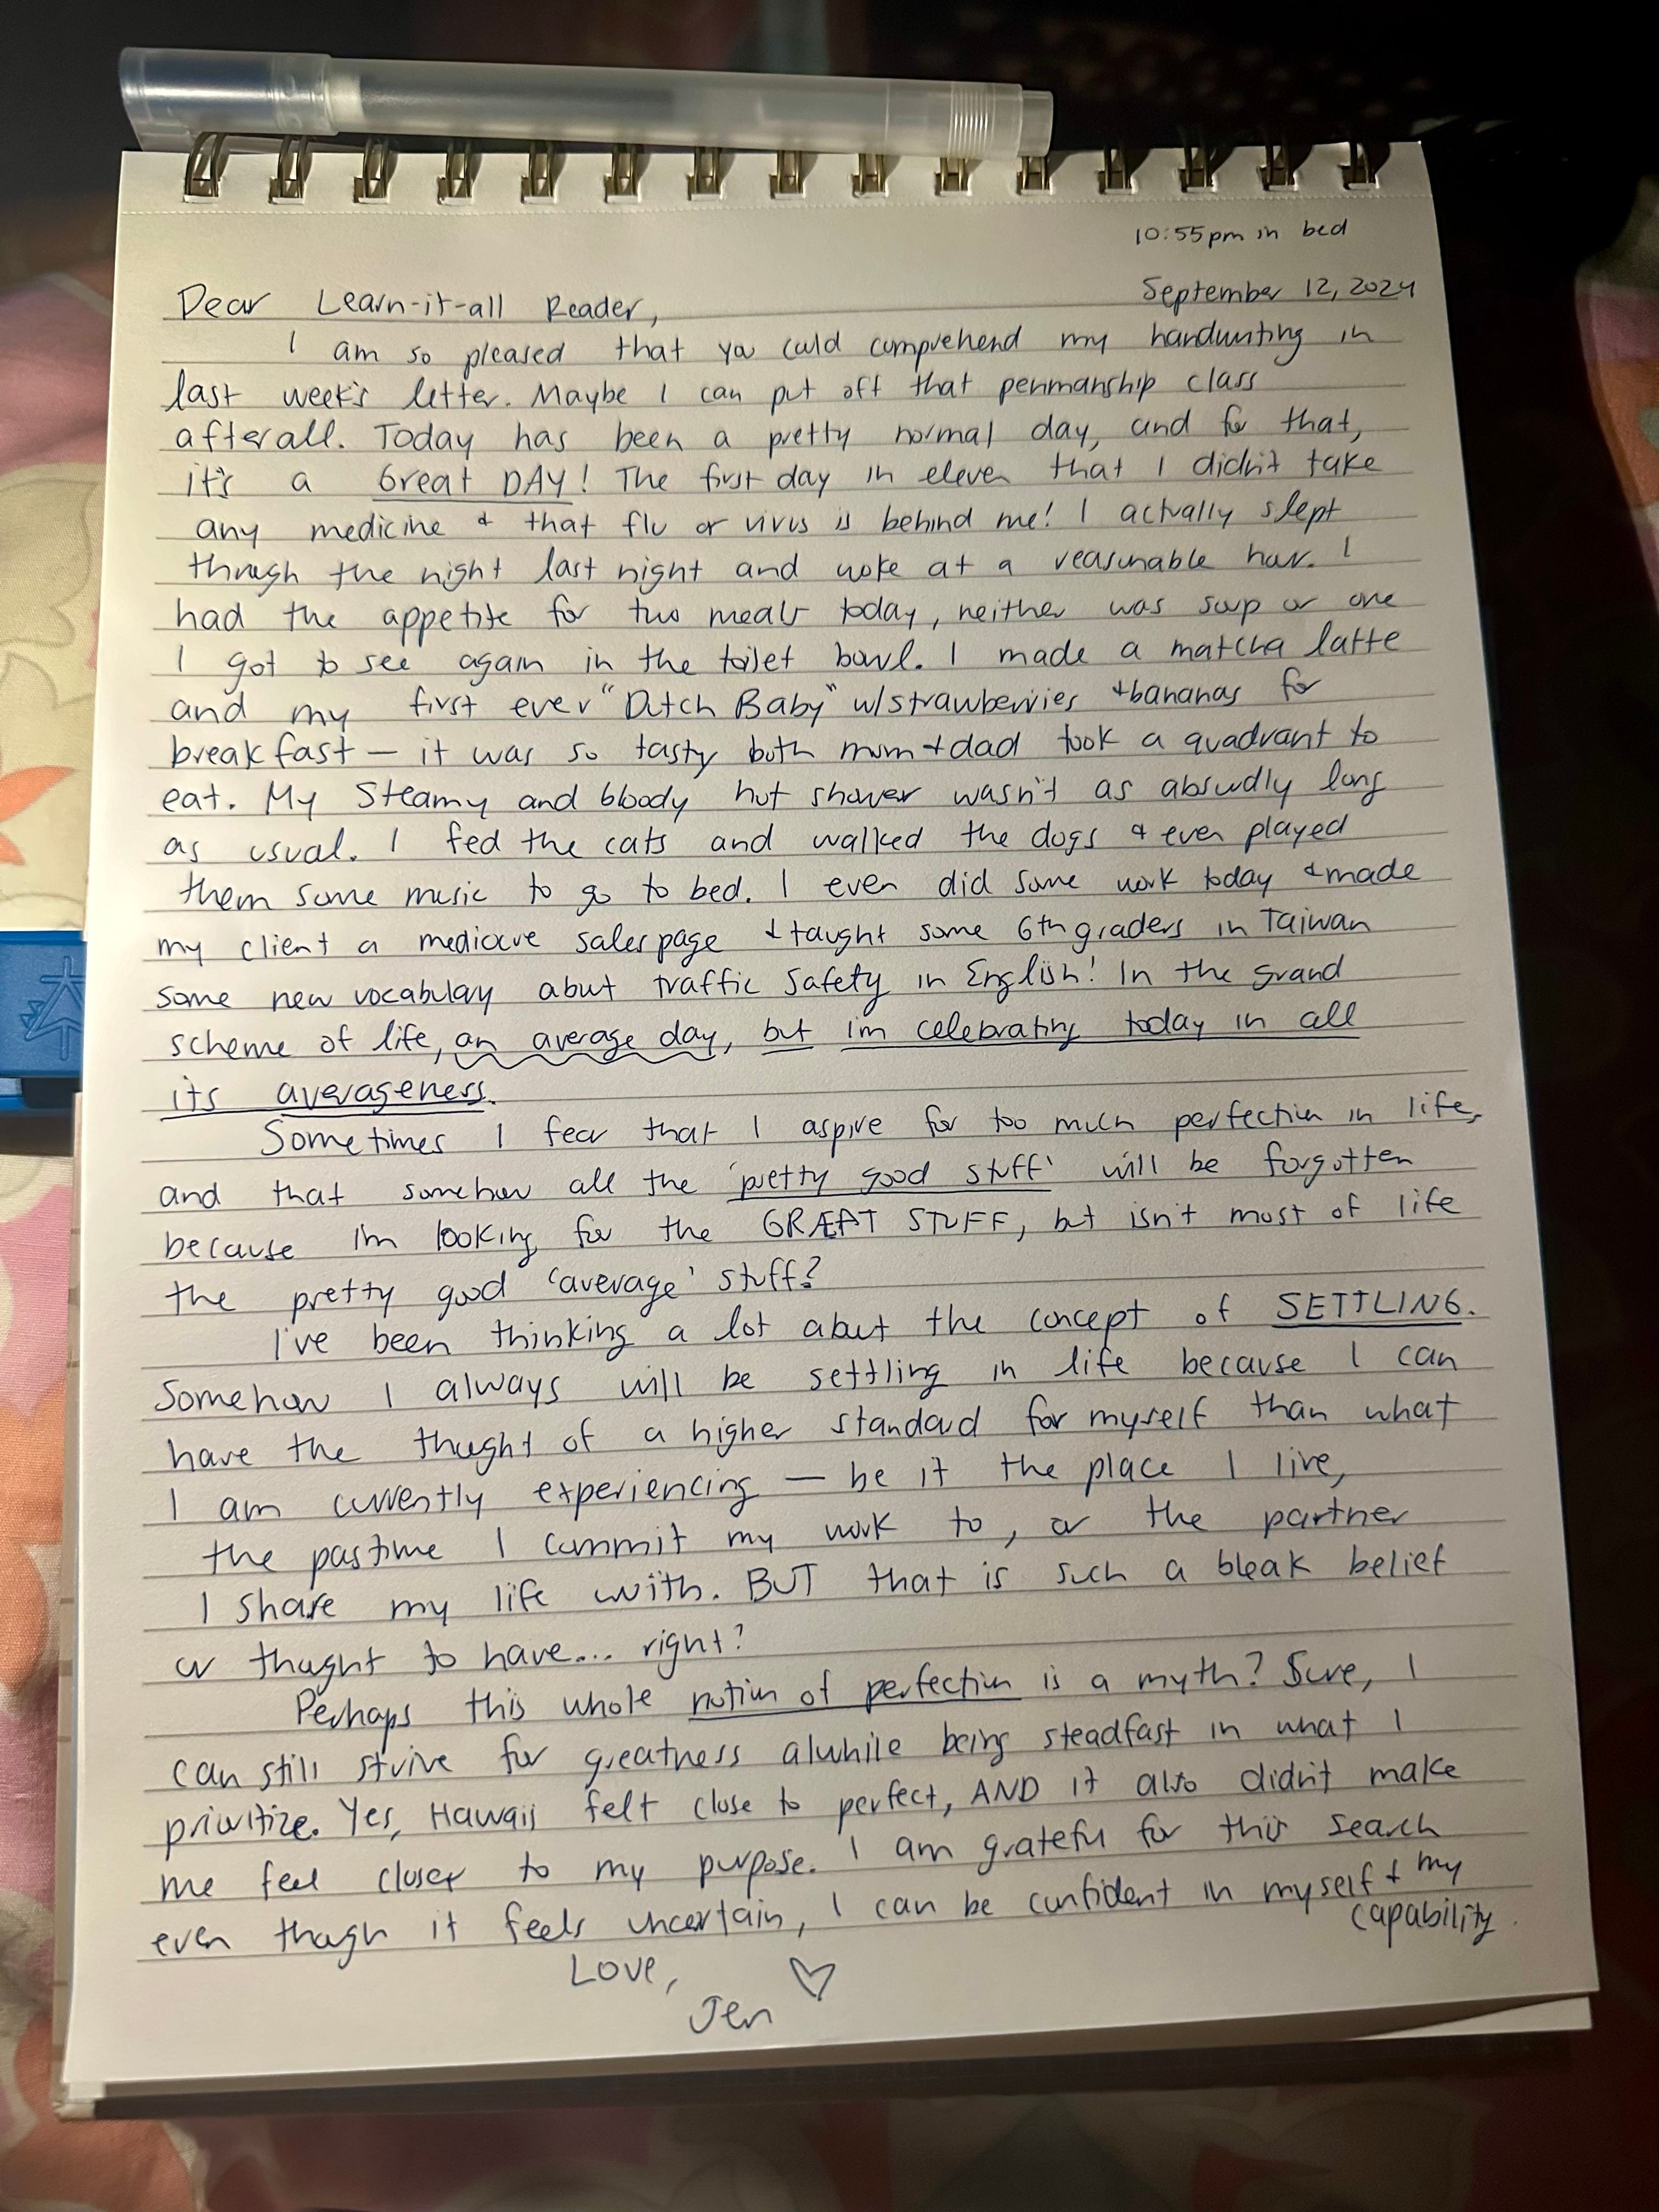 10:55pm in bed
September 12, 2024
Dear Learn-it-all Reader,
I am so pleased that you could comprehend my handwriting in
last week's letter. Maybe I can put off that penmanship class
afterall. Today has been a pretty normal day, and for that,
it's a Great DAY! The first day in eleven that I didn't take
any medicine & that flu or virus is behind me! I actually slept
through the night last night and woke at a reasonable hour. I
had the appetite for two meals today, neither was soup or one
I got to see again in the toilet bowl. I made a matcha latte
and my first ever "Dutch Baby" w/strawberries +bananas for
breakfast — it was so tasty both mom+dad took a quadrant to
eat. My Steamy and bloody hot shower wasn't as absurdly long
as usual. I fed the cats and walked the dogs & even played
them some music to go to bed. I even did some work today +made
my client a mediocre sales page + taught some 6th graders in Taiwan
some new vocabulary about traffic safety in English! In the grand
scheme of life, an average day, but im celebrating today in all
its averageness.
Sometimes I fear that I aspire for too much perfection in life,
and that somehow all the 'pretty good stuff' will be forgotten
because I'm looking for the GREAT STUFF, but isn't most of life
the pretty good 'average' stuff?
I've been thinking a lot about the concept of SETTLING.
Somehow I always will be settling in life because I can
have the thought of a higher standard for myself than what
I am currently experiencing — be it the place I live,
the pastime I commit my work to, or the partner
I share my life with. BUT that is such a bleak belief
or thought to have... right?
Perhaps this whole notion of perfection is a myth? Sure, I
can still strive for greatness alwhile being steadfast in what I
prioritize. Yes, Hawaii felt close to perfect, AND it also didn't make
me feel closer to my purpose. I am grateful for this search
even though it feels uncertain, I can be confident in myself + my
capability.
Love,
Jen ♡